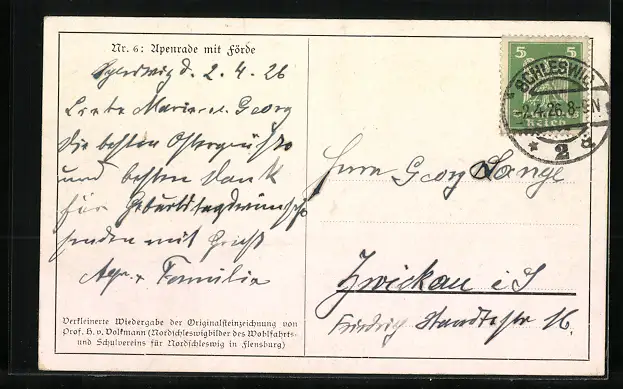 Nr. 6: Apenrade mit Förde
Schleswig d. 2. 4. 26
Liebe Marie u. Georg
die besten Ostergrüße
und besten Dank
für Geburtstagswünsche
senden mit Gruß
Familie
Verkleinerte Wiedergabe der Originalsteinzeichnung von
Prof. H. v. Volkmann (Nordschleswigbilder des Wohlfahrts-
und Schulvereins für Nordschleswig in Flensburg)
5 5
SCHLESWIG
-2.4.26.8-9N
* 2 d
Herrn Georg Lange
Zwickau i. S
Friedrich 16.